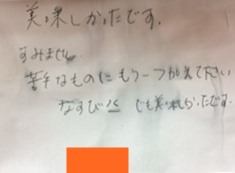 美味しかったです。
すみません
苦手なものにもう一つ加えて下さい
なすび でも美味しかったです。